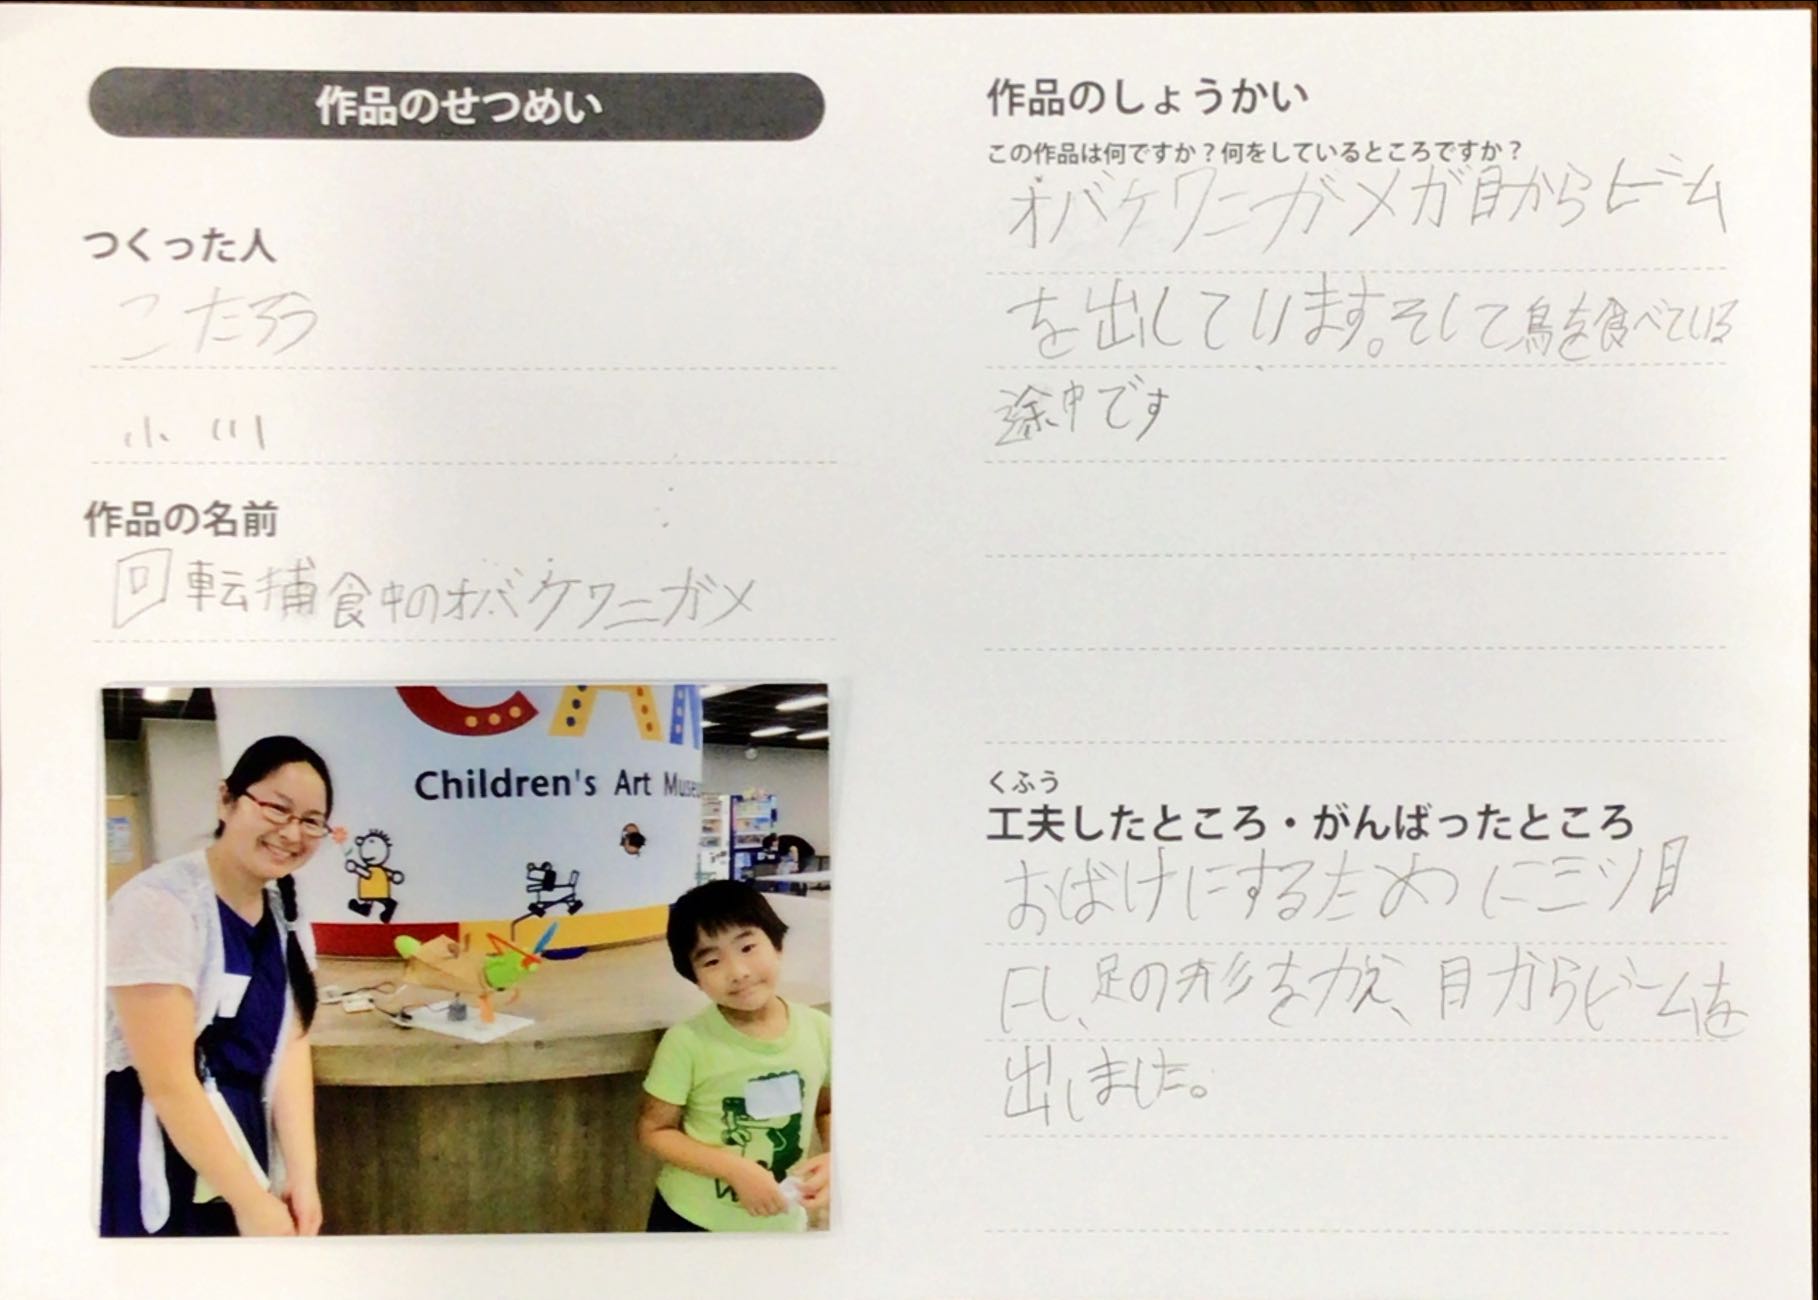 作品のせつめい
つくった人
こたろう
小川
作品の名前
回転捕食中のオバケワニガメ
CAM
Children's Art Muse
作品のしょうかい
この作品は何ですか？何をしているところですか？
オバケワニガメガ目からビーム
を出しています。そして鳥を食べている
途中です
くふう
工夫したところ・がんばったところ
おばけにするために三ツ目
にし、足の形をかえ、目からビームを
出しました。